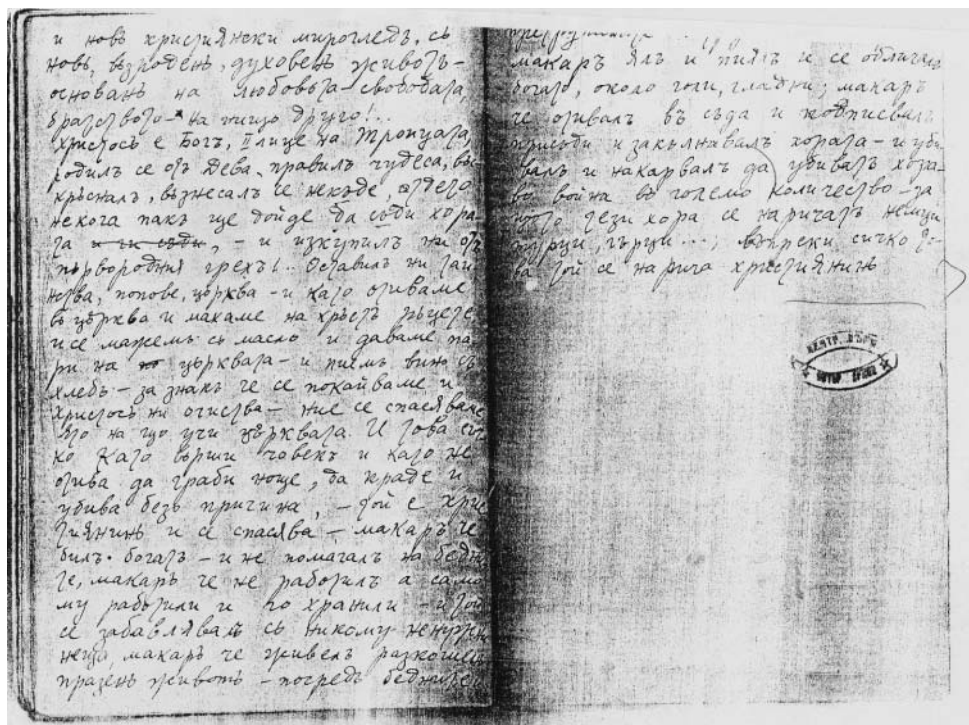 и новъ християнски мирогледъ, съ
новъ, възроденъ, духовенъ животъ –
основанъ на любовьта – свободата,
братството – на нищо друго!..
Христосъ е Богъ, II лице на Троицата,
родилъ се отъ Дева, правилъ чудеса, въз-
кръсналъ, възнесалъ се некъде, отдето
некога пакъ ще дойде да съди хора-
та, – и изкупилъ ни отъ
първородния грехъ!.. Оставилъ ни таин-
ства, попове, църква – и като отиваме
въ църква и махаме на кръстъ ръцете
и се мажемъ съ масло и даваме па-
ри на църквата – и пиемъ вино съ
хлебъ – за знакъ че се покайваме и
Христосъ ни очиства – ние се спасяваме
ето на що учи църквата. И това сич-
ко като върши човекъ и като не
отива да граби ноще, да краде и
убива безъ причина, – той е хрис-
тиянинъ и се спасява – макаръ че
билъ богатъ – и не помагалъ на бедни-
те, макаръ че не работилъ а само
му работили и го хранили – и той
се забавлявалъ съ никому ненужни
неща, макаръ че живелъ разкошенъ
празенъ животъ – посредъ бедняци
макаръ ялъ и пиялъ и се обличалъ
богато, около голи, гладни; макаръ
че отивалъ въ съда и подписвалъ
присъди и закълнавалъ хората – и уби-
валъ и накарвалъ да убиватъ хора –
во война въ големо количество – за-
щото тези хора се наричатъ немци
турци, гърци...; въпреки сичко то-
ва той се нарича християнинъ